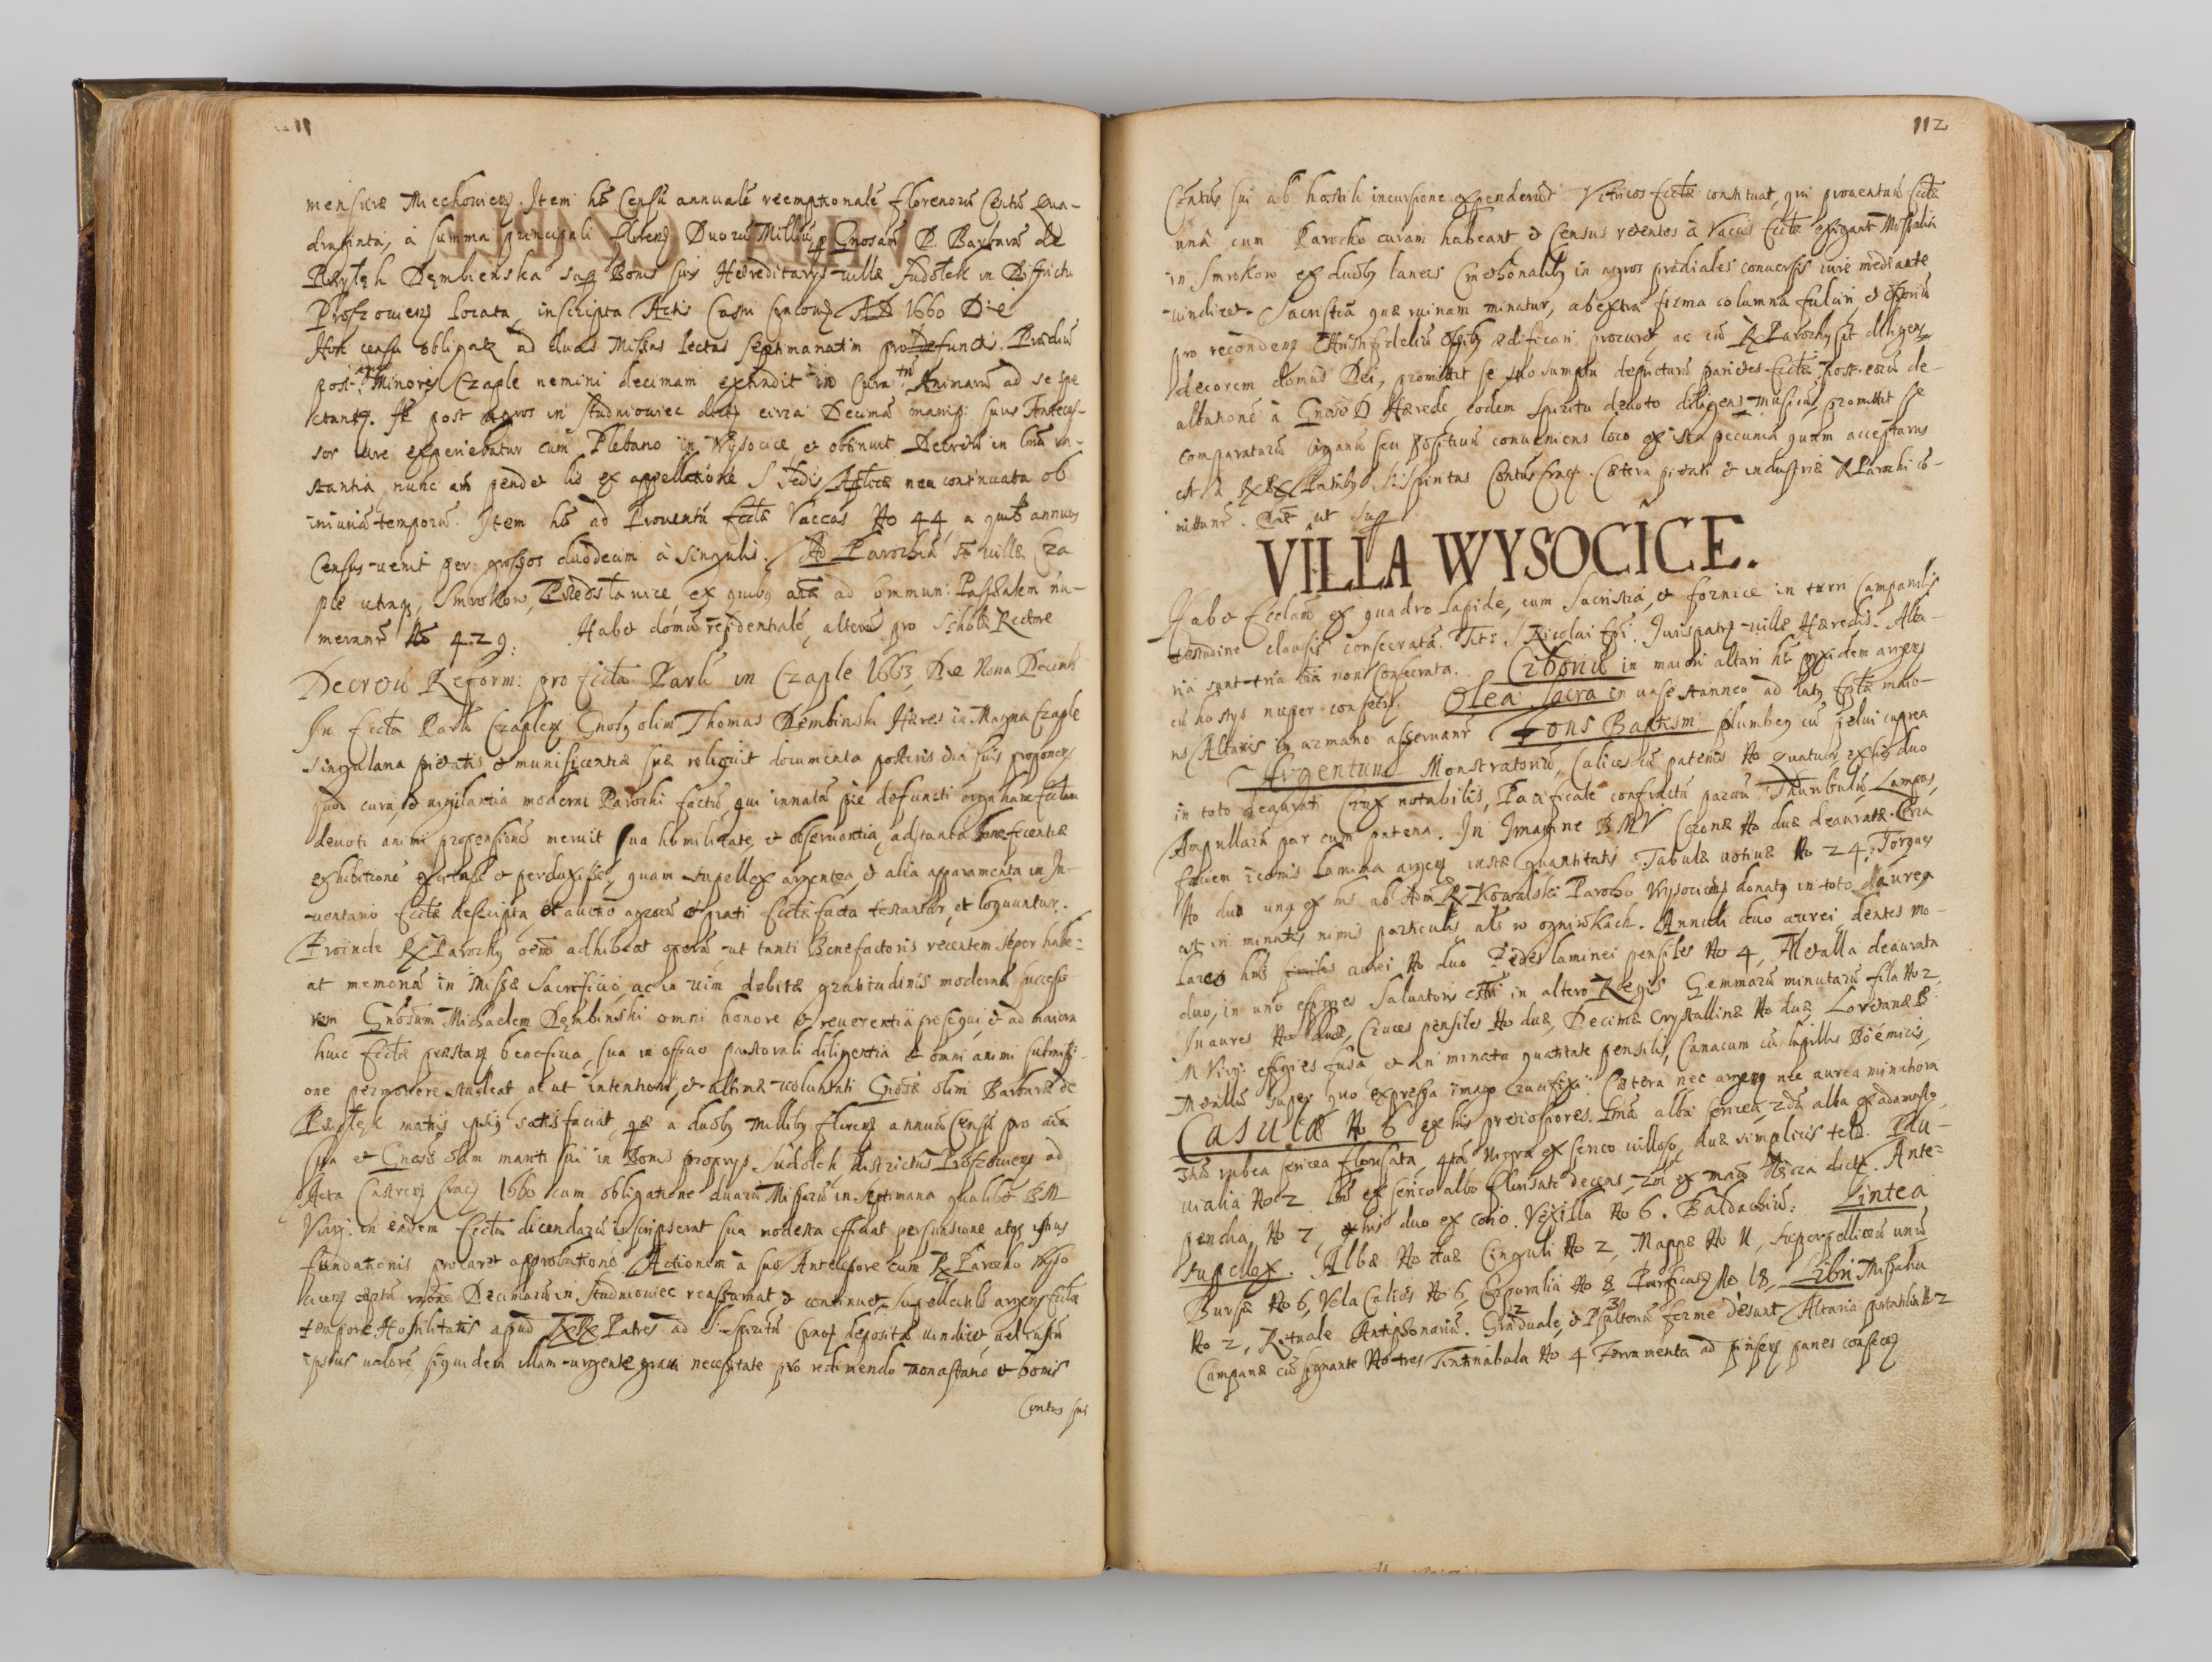 mensuræ Miechovien. Item hẽt Censũ annualẽ reemptionalẽ florenorũ Centũ Qua-
draginta, à summa principali floren Duorũ Milliũ p Gnosam D. Barbarã de
Dembienska sup Bonis suis Hæreditarys villæ Sudołek in Districtu
Proszovien Locata, inscripta Actis Castri Cracovien AD 1660 Die
Hoc censu obligatz ad duas Missas lectas septimanatim pro Defunctis. Prædiũ
post Minore Czaple nemini decimam extradit in Cura Animarũ ad se spe
ctantz. It post agros in Studniowiec dictz circa Decimã manip: suus Anteces-
sor iure experiebatur cum Plebano in Wysocice et obtinuit Decretũ in in-
stantia, nunc aut pendet lis ex appellatione S Sedis Aplicæ non continuata ob
iniuriã temporũ. Item hẽt ad Proventũ Ecclæ Vaccas No 44, a quibz annuus
Census venit per grossos duodecim à singulis. Ad Parochiã villæ Cza
ple utraqz, Smrokow, ex quibz ad ommun: Passchalem nu-
merantr No 429: Habet domũ residentialẽ, alterã pro Scholæ Rectore
Decretũ Reform: pro Eccla Parli in Czaple 1663, Die Nona Decemb
In Eccla Parli Czaplen Gnosus olim Thomas Dembinski Hæres in Magna Czaple
singularia pietatis et munificentiæ suæ reliquit documenta posteris suis proponens
quod cura, et vigilantia moderni Parochi factũ, qui innatã piè defuncti erga hanc Ecclam
devoti animi propensionẽ meruit sua humilitate, et observantia, ad tanta beneficentiæ
exhibitionẽ et perduxisse, quam supellex argentea, et alia apparamenta in In-
ventario Ecclæ descripta, et auctio agrorũ et prati Ecclæ facta testantur, et loquuntur.
Proinde R Parochus oẽm adhibeat operã ut tanti Benefactoris recentem sẽper habe-
at memoriã in Missæ Sacrificio, ac in vim debitæ gratitudinis modernũ successo
rem Gnosum Michaelem Dembinski omni honore et reverentia prosequi, et ad maiora
huic Ecclæ præstanda beneficia, sua in officio pastorali diligentia et omni animi submissi-
one permovere studeat, ac ut intentioni, et ultimæ voluntati Gnosæ olim Barbaræ de
matris ipsius satisfaciat, quæ a duobz millibz floren annuũ Censũ pro aĩa
sua et Gnosi olim mariti sui in Bonis proprys Sudołek districtus Proszovien ad
Acta Castren Crac 1660 cum obligatione duarũ Missarũ in septimana qualibet BM
Virg: in eadem Eccla dicendarũ inscripserat sua modesta efficiat persuasione atqz ipsius
fundationis procuret approbationẽ. Actionem à suo Antecessore cum R Parocho Wyso
cicen Decimarũ in Studniowiec reassumat, et continuet. Supellectile argen Ecclæ
tempore Hostilitatis apud RR Patres ad S. Spiritũ Crac depositã vindicet, vel iustũ
ipsius valorẽ, siquidem illam urgente gravi necessitate pro redimendo monasterio et bonis
Contus sui
112
Contus sui ab hostili incursione expenderũt. Vitricos Ecclæ constituat, qui proventuũ Ecclæ
unà cum Parocho curam habeant, et Census retentos à Vaccis Ecclæ exigant. Missalia
in Smrokow ex duobz laneis Cmethonalibz in agros prædiales conversis iure mediante
vindicet. Sacristiã quæ ruinam minatur, ab extra firma columna fulciri, et Ossoriũ
pro reconden Christifideliũ ossibz ædificari procuret, ac cũ R Parochus sit diligens
decorem domus Dei, promittit se suo sumptu depicturũ parietes Ecclæ post eorũ de-
albationẽ à Gnoso D Hærede, eodem Spiritu devoto diligens musicus, promittit se
comparaturũ Organũ seu Positivũ conveniens loco ex ista pecunia quam accepturus
est à RR Patribz S: Spiritus Contus Crac. Cætera pietati et industriæ R Parochi cõ-
mittuntr. ut sup
VILLA WYSOCICE.
Habet Ecclam ex quadro lapide, cum Sacristia, et fornice in turri Campanilis
testudine clausis consecratã. Tit: S Nicolai Epi. Jurispatrs villæ Hæredis. Alta-
ria sunt tria non consecrata. Ciboriũ in maiori altari hẽt pyxidem argen
cũ hostys nuper consecrs. Olea Sacra in vase stanneo ad latus Eplæ maio-
ris Altaris in armario asservantr. Fons Baptism plumbeus cũ pelvi cuprea
Argentum Monstratoriũ, Calices cũ patenis No quatuor ex his duo
in toto deaurati Crux notabilis, Pacificale confractũ parvũ. Thuribulũ, Lampas,
Ampullarũ par cum patena. In Imagine BMV Coronæ No duæ deauratæ. Circa
faciem iconis lamina argen iustæ quantitatis. Tabulæ votivæ No 24. Torques
No duo unus ex his ab Adm R Kowalski Parocho Wysocicen donatus in toto aureus
est in minutis nimis particulis als w ogniwkach. Annuli duo aurei, dentes mo-
lares hmõi similes aurei No duo Pedes laminei pensiles No 4, Metalla deaurata
duo, in uno effigies Salvatoris in altero Regis Gemmarũ minutarũ fila No 2,
Inaures No duæ, Cruces pensiles No duæ, Decimæ Crystallinæ No duæ, Loretanæ B:
M Virg: effigies fusa, et in minuta quãtitate pensilis, Canacum cũ lapillis Boëmicis,
Metallũ super quo expressa imago crucifixi. Cætera nec argen nec aurea minutiora
Casulæ No 6 ex his pretiosiores. Ima alba sericea, 2da alba ex adamasto,
3tia rubea sericea florisata, 4ta nigra ex serico villoso, duæ simplicis telæ. Plu-
vialia No 2 ex serico albo florisato decens, 2dũ ex dictz. Ante-
pendia, No 7, ex his duo ex corio. Vexilla No 6. Baldachiũ: Lintea
supellex. Albæ No duæ Cinguli No 2, Mappæ No 11, Superpelliceũ unũ
Bursæ No 6, Vela Calicis No 6, Corporalia No 8 Purificatz No 18, Libri Missalia
No 2, Rituale Antiphonariũ. Graduale, et Psalteriũ ferme desunt, Altaria portatilia No 2
Campanæ cũ signante No tres Tintinabula No 4 Ferramenta ad pinsen panes consecrs